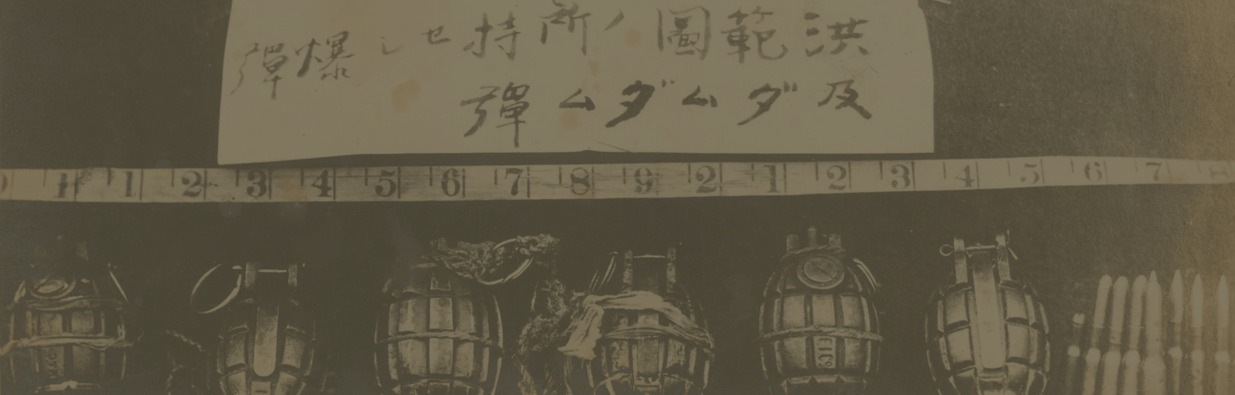 洪範圖ノ所持セシ爆彈
及ダムダム彈
1 1 2 3 4 5 6 7 8 9 2 1 2 3 4 5 6 7 8